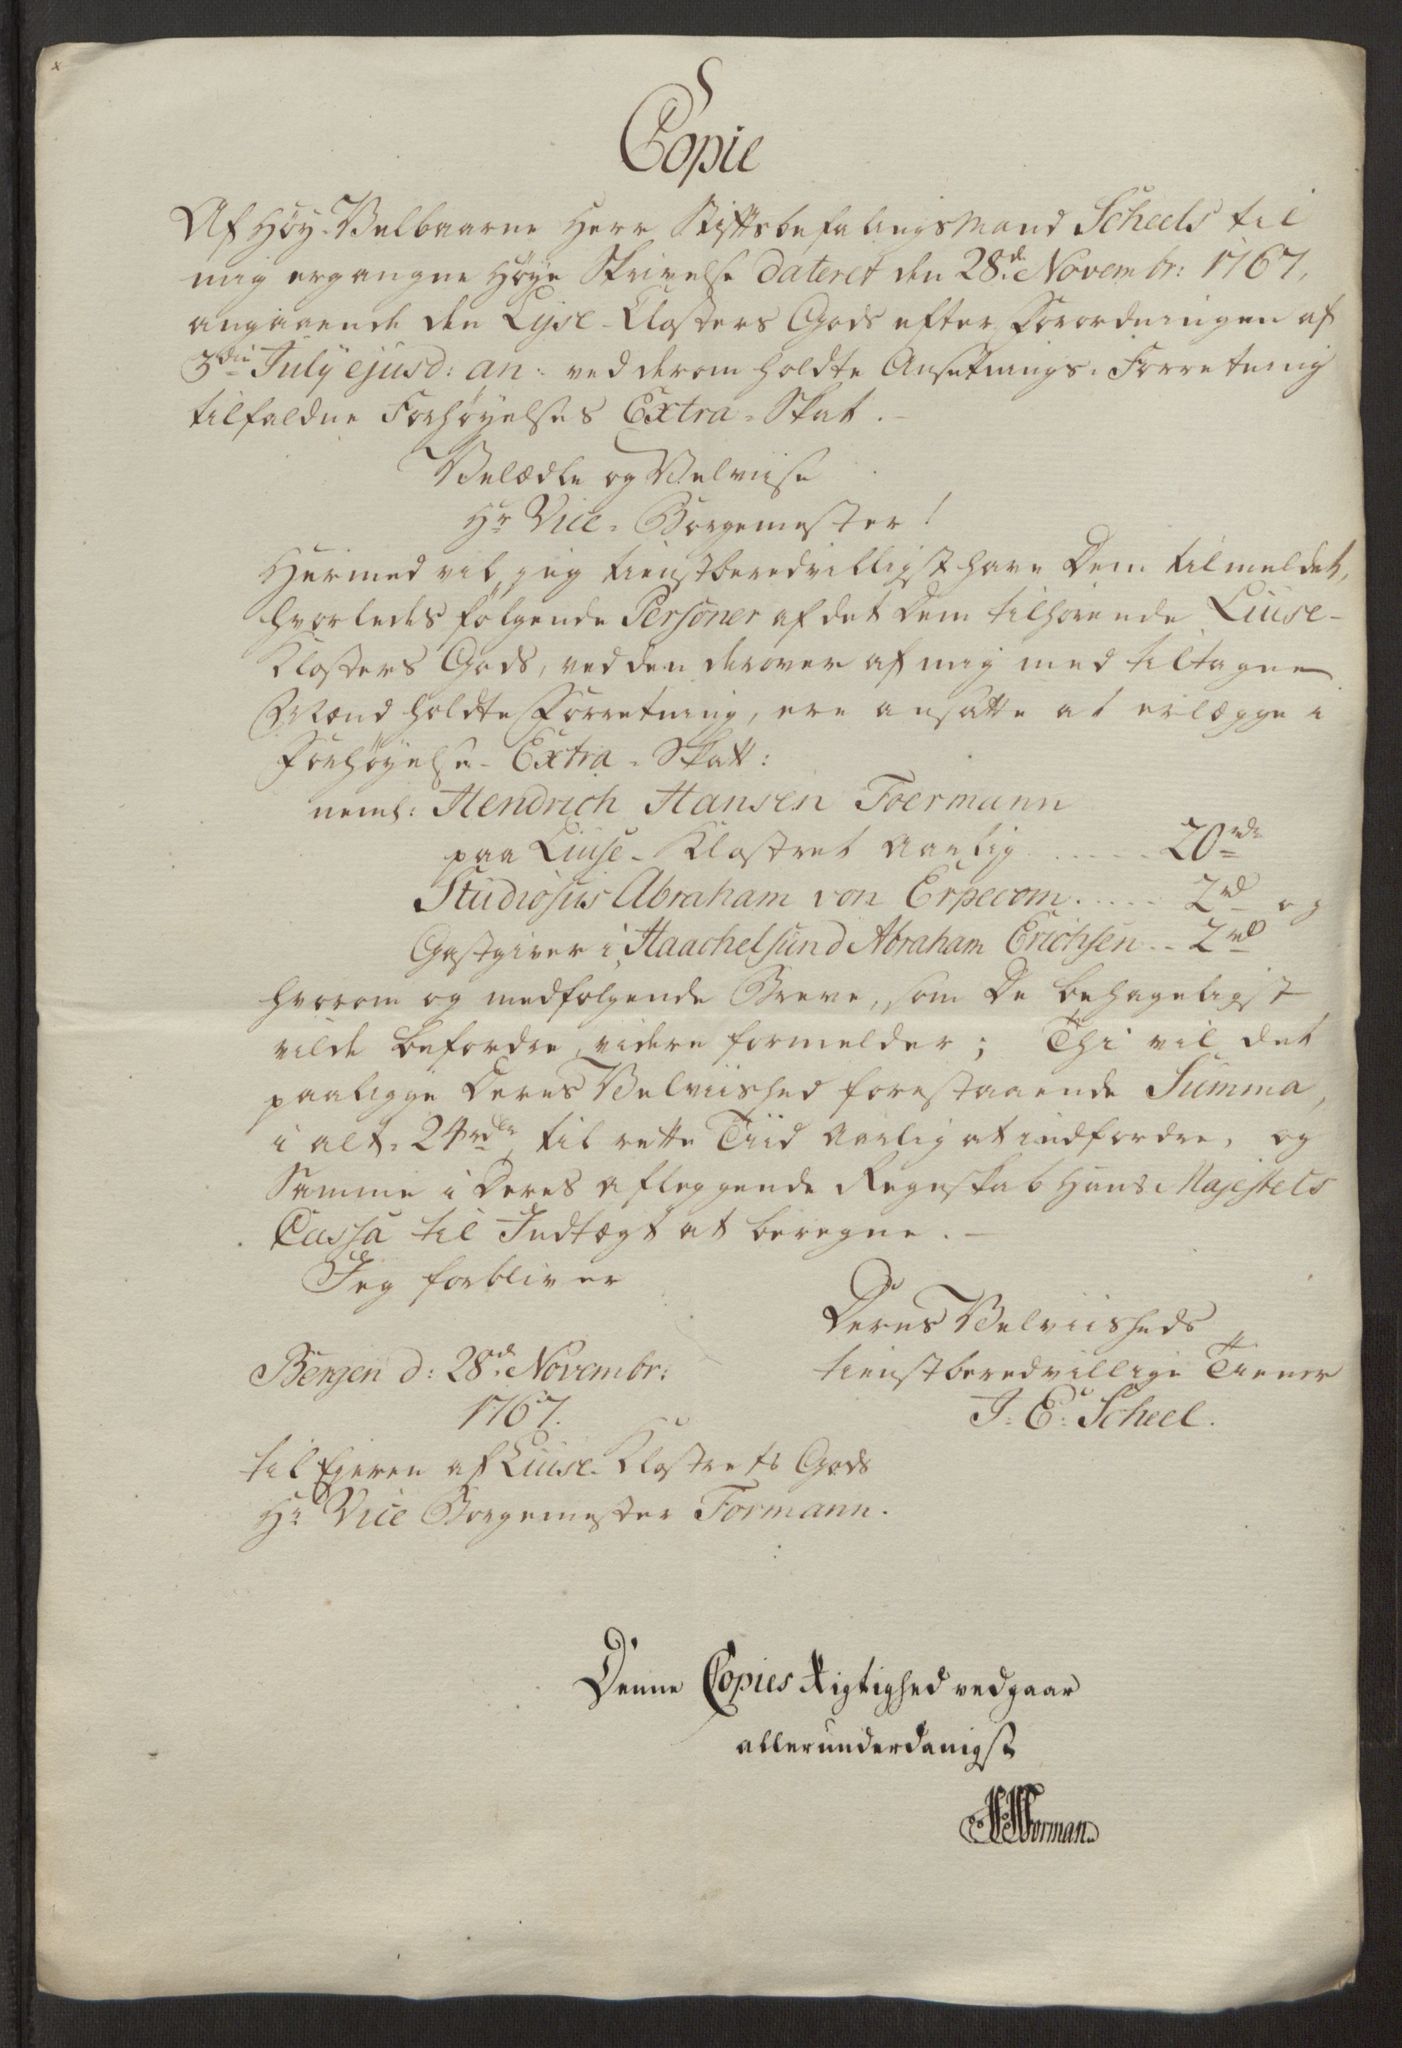 Copie
Af Høy-Velbaarne Herr Stiftsbefalingsmand Scheels til
mig ergangne Høye Skrivelse dateret den 28de Novembr: 1767,
angaaende den Lyse-Closters Gods efter Forordningen af
3die July ejusd: an: ved derom holdte Ansetnings-Forretning
tilfaldne Forhøyelses Extra-Skat.
Velædle og Velviise
Hr Vice-Borgemester!
Hermed vil jeg tienstberedvilligst have Dem tilmeldet,
hvorledes følgende Personer af det Dem tilhørende Liuse-
Klosters Gods, ved den derover af mig med tiltagne
Mænd holdte Forretning, ere ansatte at erlægge i
Forhøyelse-Extra-Skatt:
neml: Hendrich Hansen Foermann
paa Liuse-Klostret Aarlig ...... 20 rdr
Studiosus Abraham von Erpecom ..... 2 rd og
Gastgiver i Haachelsund Abraham Erichsen .. 2 rd
hvorom og medfølgende Breve, som De behageligst
vilde befordre, videre formelder; Thi vil det
paaligge Deres Velviished forestaaende Summa,
i alt 24 rdr, til rette Tiid Aarlig at indfordre, og
Samme i Deres aflæggende Regnskab Hans Majestets
Cassa til Indtægt at beregne.
Jeg forbliver
Deres Velviisheds
tienstberedvillige Tiener
J: E: Scheel.
Bergen d: 28de Novembr:
1767.
til Ejeren af Liuse-Klostrets Gods
Hr Vice Borgemester Formann.
Denne Copies Rigtighed vedgaar
allerunderdanigst
HFormann